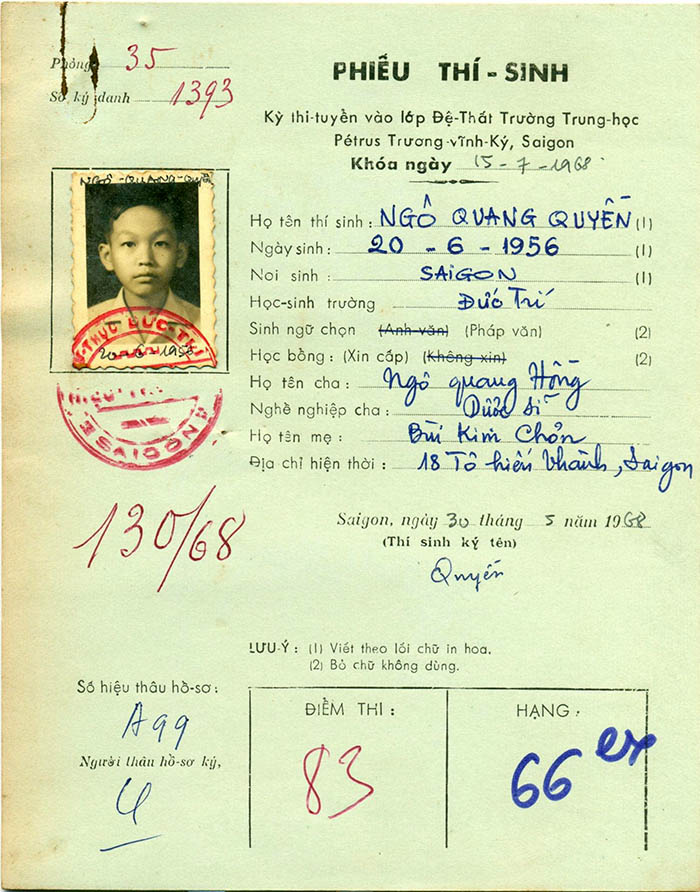 Phòng 35
Số ký danh 1393
PHIẾU THÍ-SINH
Kỳ thi-tuyển vào lớp Đệ-Thất Trường Trung-học
Pétrus Trương-vĩnh-Ký, Saigon
Khóa ngày 15-7-1968
NGÔ-QUANG-QUYỀN
20-6-1956
SAIGON
Họ tên thí sinh : NGÔ QUANG QUYỀN (1)
Ngày sinh : 20 - 6 - 1956 (1)
Nơi sinh : SAIGON (1)
Học-sinh trường Đức Trí
Sinh ngữ chọn (Anh-văn) (Pháp văn) (2)
Học bồng : (Xin cấp) (Không xin) (2)
Họ tên cha : Ngô quang Hồng
Nghề nghiệp cha : Dược sĩ
Họ tên mẹ : Bùi Kim Chởn
Địa chỉ hiện thời : 18 Tô hiến thành, Saigon
130/68
Saigon, ngày 30 tháng 5 năm 1968
(Thí sinh ký tên)
Quyền
LƯU-Ý : (1) Viết theo lối chữ in hoa.
(2) Bỏ chữ không dùng.
Số hiệu thâu hồ-sơ :
A99
Người thâu hồ-sơ ký,
ĐIỂM THI :
83
HẠNG :
66 ex